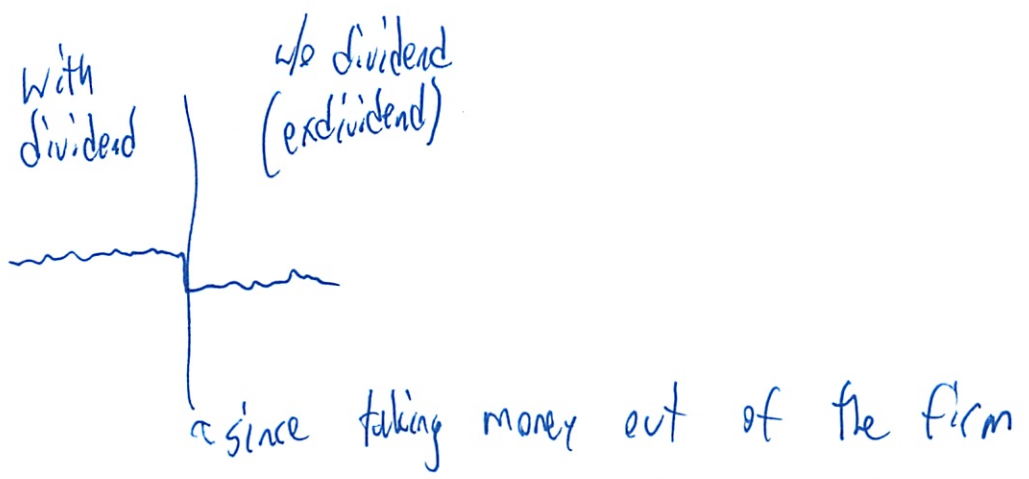 with
dividend
w/o dividend
(exdividend)
since taking money out of the firm